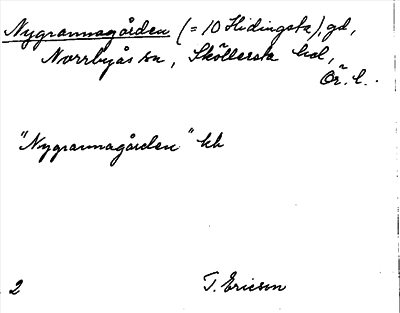 Nygrannagården (= 10 Hidingsta), gd,
Norrbyås sn, Sköllersta hd,
Ör. l.
"Nygrannagården" kh
2 T. Ericson